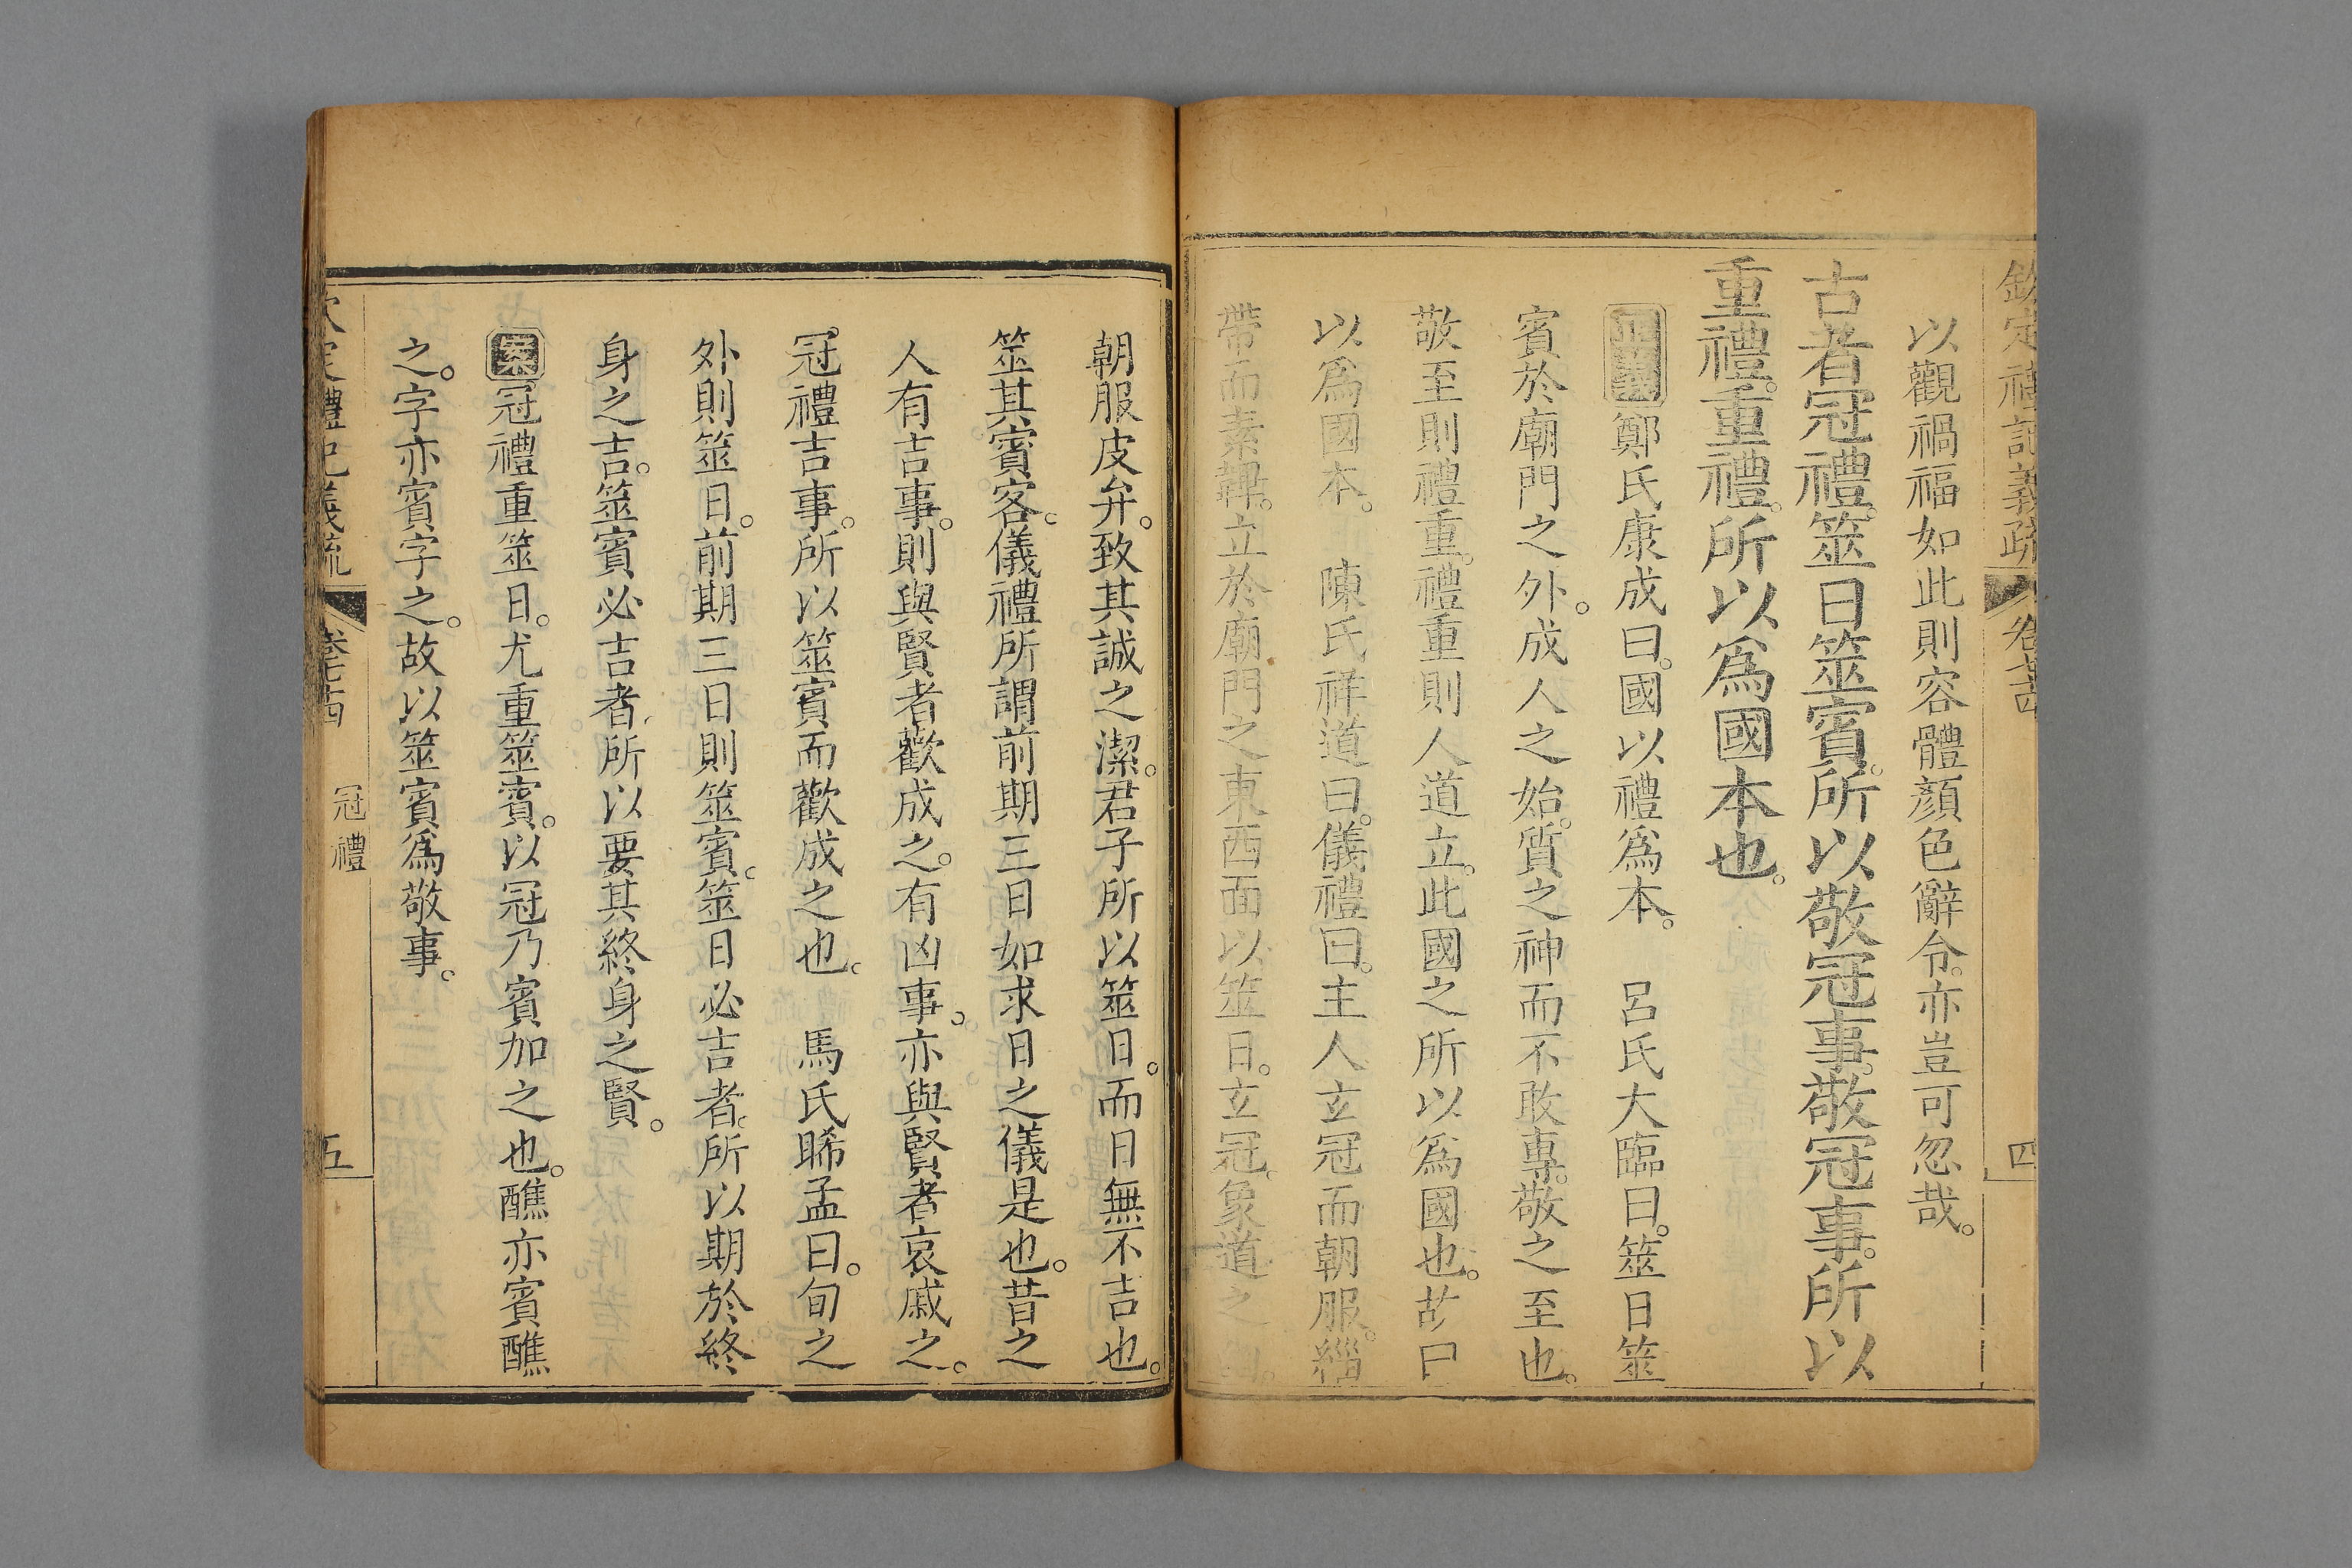 欽定禮記義疏 卷七十四 四
以觀禍福如此則容體顏色辭令。亦豈可忽哉。
古者冠禮。筮日筮賓。所以敬冠事。敬冠事。所以
重禮。重禮。所以爲國本也。
正義鄭氏康成曰。國以禮爲本。 呂氏大臨曰。筮日筮
賓於廟門之外。成人之始。質之神而不敢專。敬之至也。
敬至則禮重。禮重則人道立。此國之所以爲國也。故曰
以爲國本。 陳氏祥道曰。儀禮曰。主人玄冠而朝服。緇
帶而素韠。立於廟門之東西面以筮日。玄冠。象道之
朝服皮弁。致其誠之潔。君子所以筮日。而日無不吉也。
筮其賓客。儀禮所謂前期三日如求日之儀是也。昔之
人有吉事。則與賢者歡成之。有凶事。亦與賢者哀戚之。
冠禮吉事。所以筮賓而歡成之也。 馬氏晞孟曰。旬之
外則筮日。前期三日則筮賓。筮日必吉者。所以期於終
身之吉。筮賓必吉者。所以要其終身之賢。
案冠禮重筮日。尤重筮賓。以冠乃賓加之也。醮亦賓醮
之。字亦賓字之。故以筮賓爲敬事。
欽定禮記義疏 卷七十四 冠禮 五